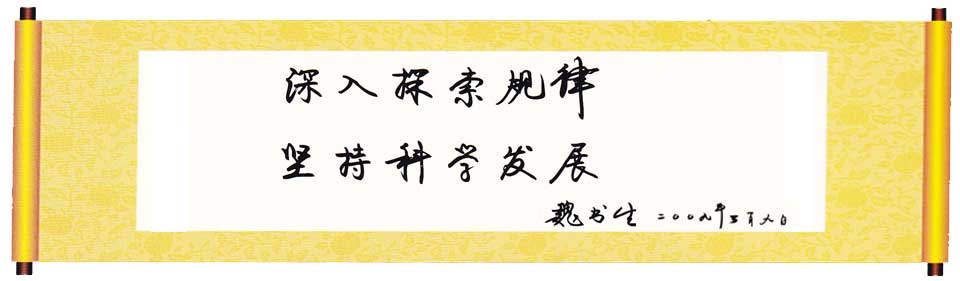 深入探索规律
坚持科学发展
魏书生 二〇〇九年五月九日